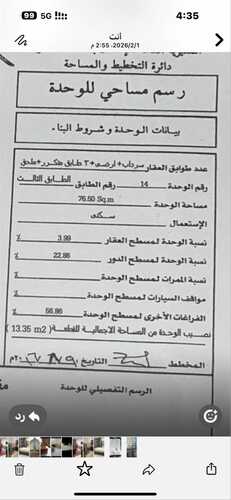 4:35
5G
99
أنت
2026/2/1، 2:55 م
دائرة التخطيط والمساحة
رسم مساحي للوحدة
بيانات الوحدة و شروط البناء
عدد طوابق العقار سرداب + ارضي + ٣ طابق متكرر + ملحق
رقم الوحدة 14 رقم الطابق الطابق الثالث
مساحة الوحدة 76.50 Sq.m
الإستعمال سكني
نسبة الوحدة لمسطح العقار 3.99 ٪
نسبة الوحدة لمسطح الدور 22.86 ٪
نسبة الممرات لمسطح الوحدة ٪
مواقف السيارات لمسطح الوحدة ٪
الفراغات الأخرى لمسطح الوحدة 56.86 ٪
نصيب الوحدة من المساحة الاجمالية للقطعة ( 13.35 m2 )
المخطط التاريخ
الرسم التفصيلي للوحدة
رد